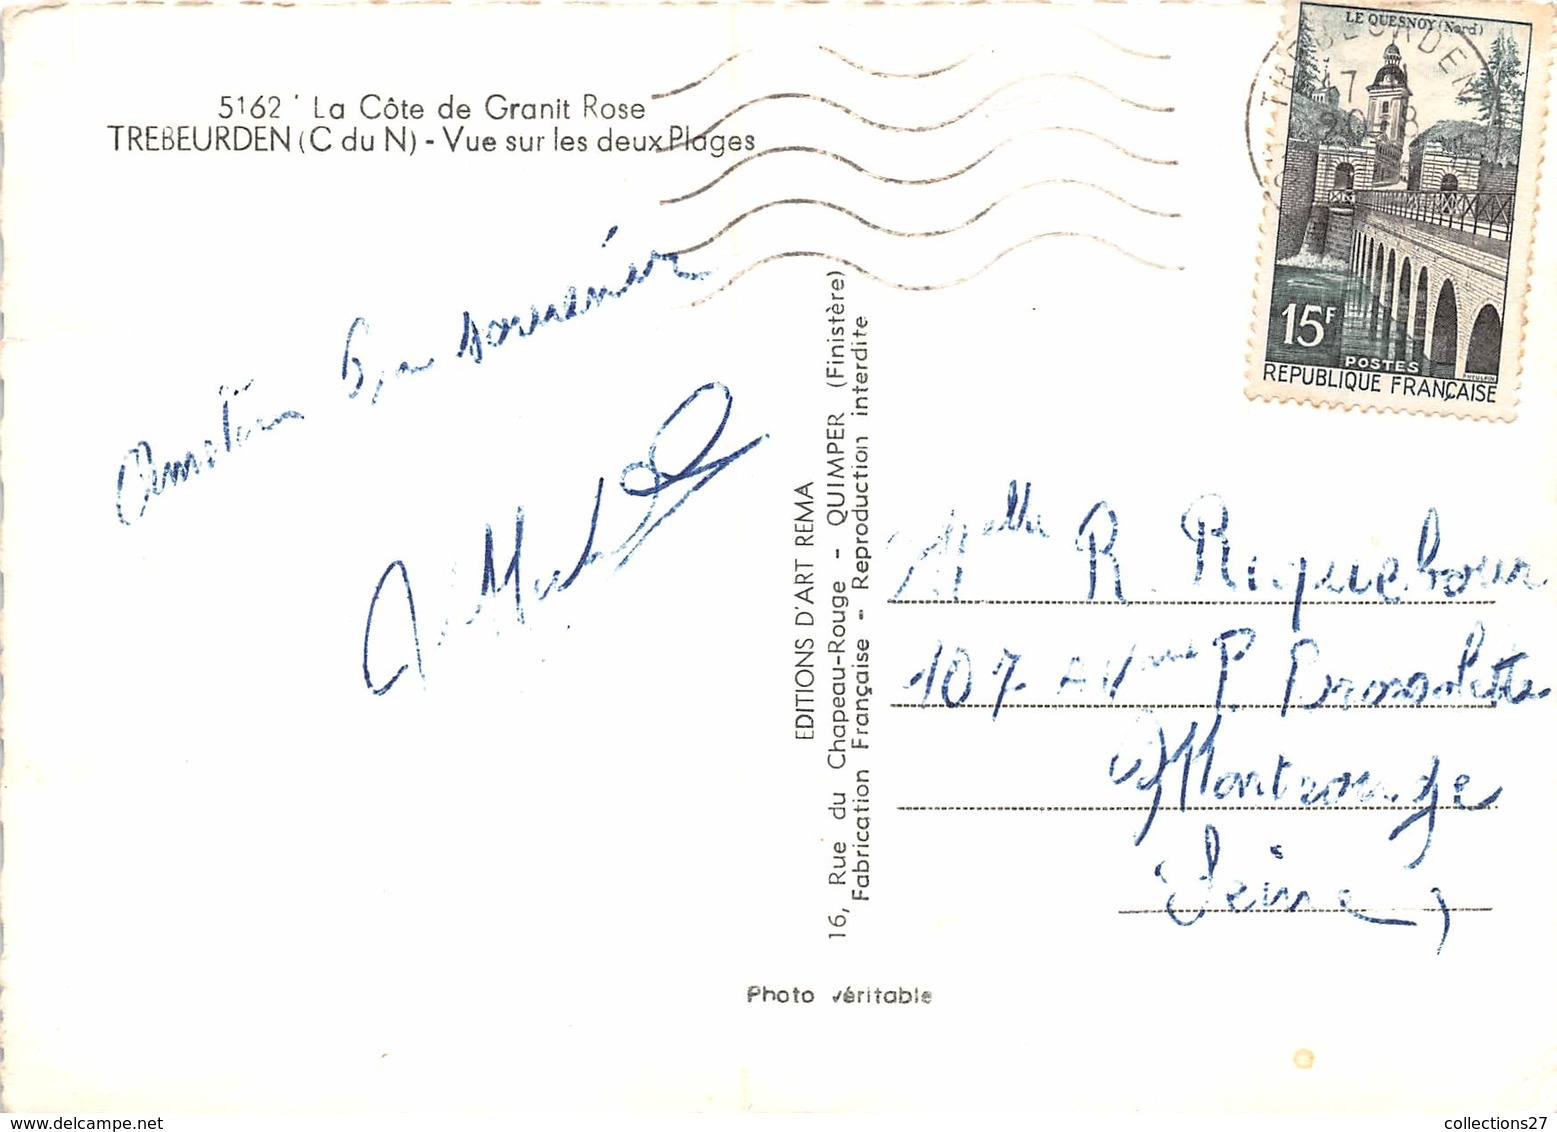 5162 La Côte de Granit Rose
TREBEURDEN (C du N) - Vue sur les deux Plages
LE QUESNOY (Nord)
TREBEURDEN
17
20-8
15F
POSTES
RÉPUBLIQUE FRANÇAISE
Bon souvenir
EDITIONS D'ART REMA
16, Rue du Chapeau-Rouge - QUIMPER (Finistère)
Fabrication Française - Reproduction interdite
Melle R. Riquebour
107 Avenue P. Brossolette
Montrouge
Seine
Photo véritable
collections27